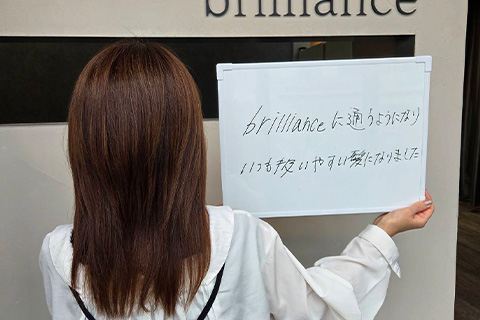 brilliance
brillianceに通うようになり
いつも扱いやすい髪になりました